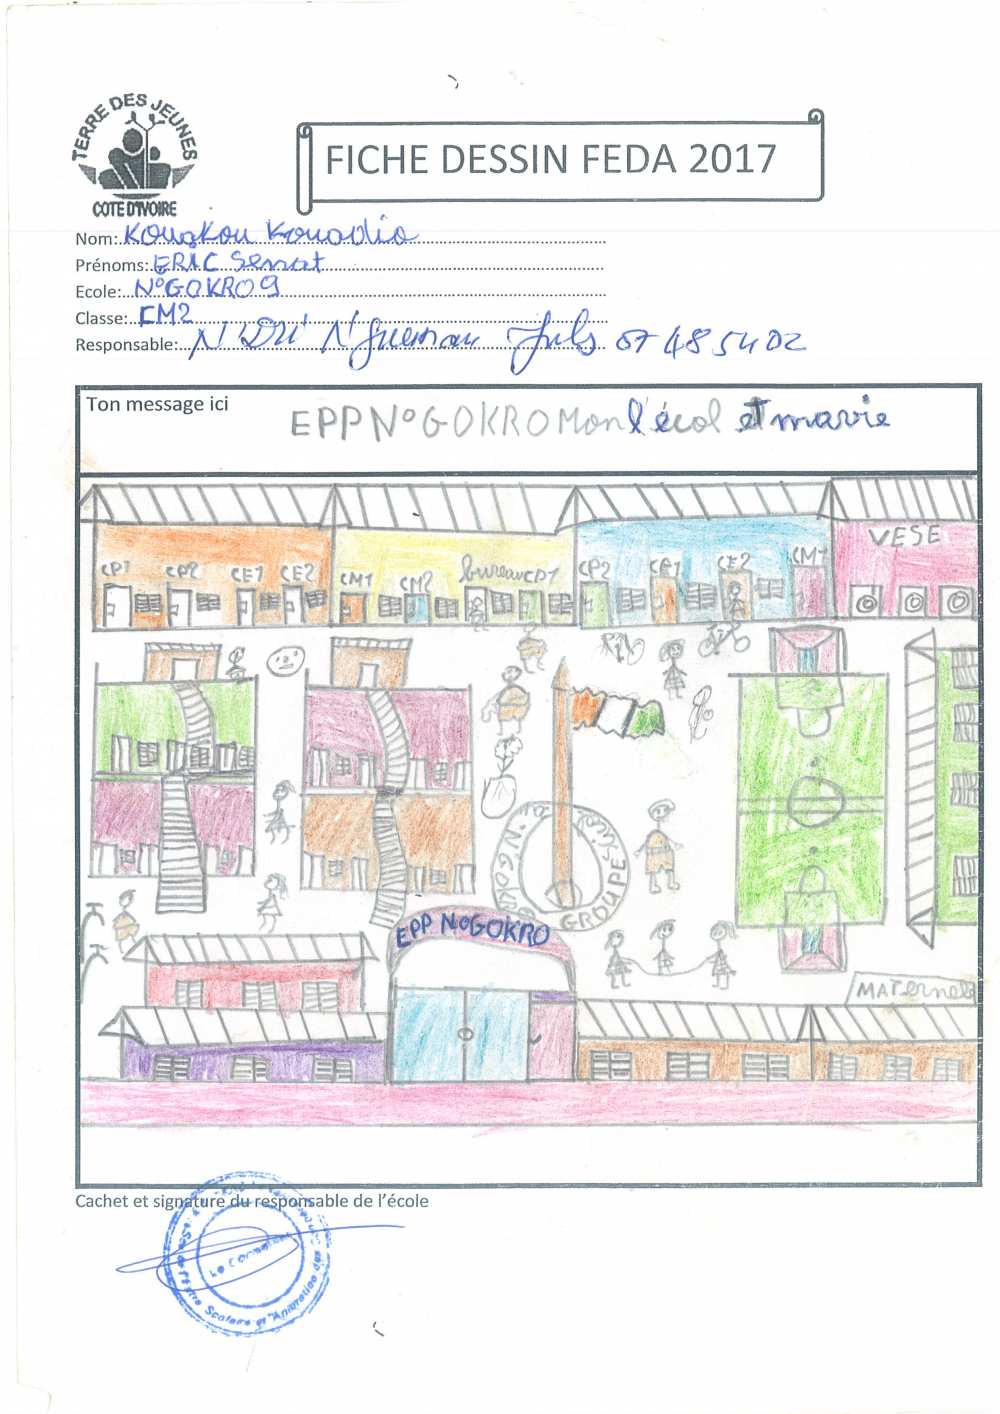 TERRE DES JEUNES
COTE D'IVOIRE
FICHE DESSIN FEDA 2017
Nom: Kouakou Kouadio
Prénoms: ERIC
Ecole: N°GOKRO 9
Classe: CM2
Responsable: N'DRi N'Guessan Juls 07 48 54 02
Ton message ici
EPP N°GOKRO Mon l'écol et ma vie
VESE
CP1 CP2 CE1 CE2 CM1 CM2 bureau CP1 CP2 CE1 CE2 CM1
GROUPE
N°GOKRO
EPP N°GOKRO
MATernel
Cachet et signature du responsable de l'école